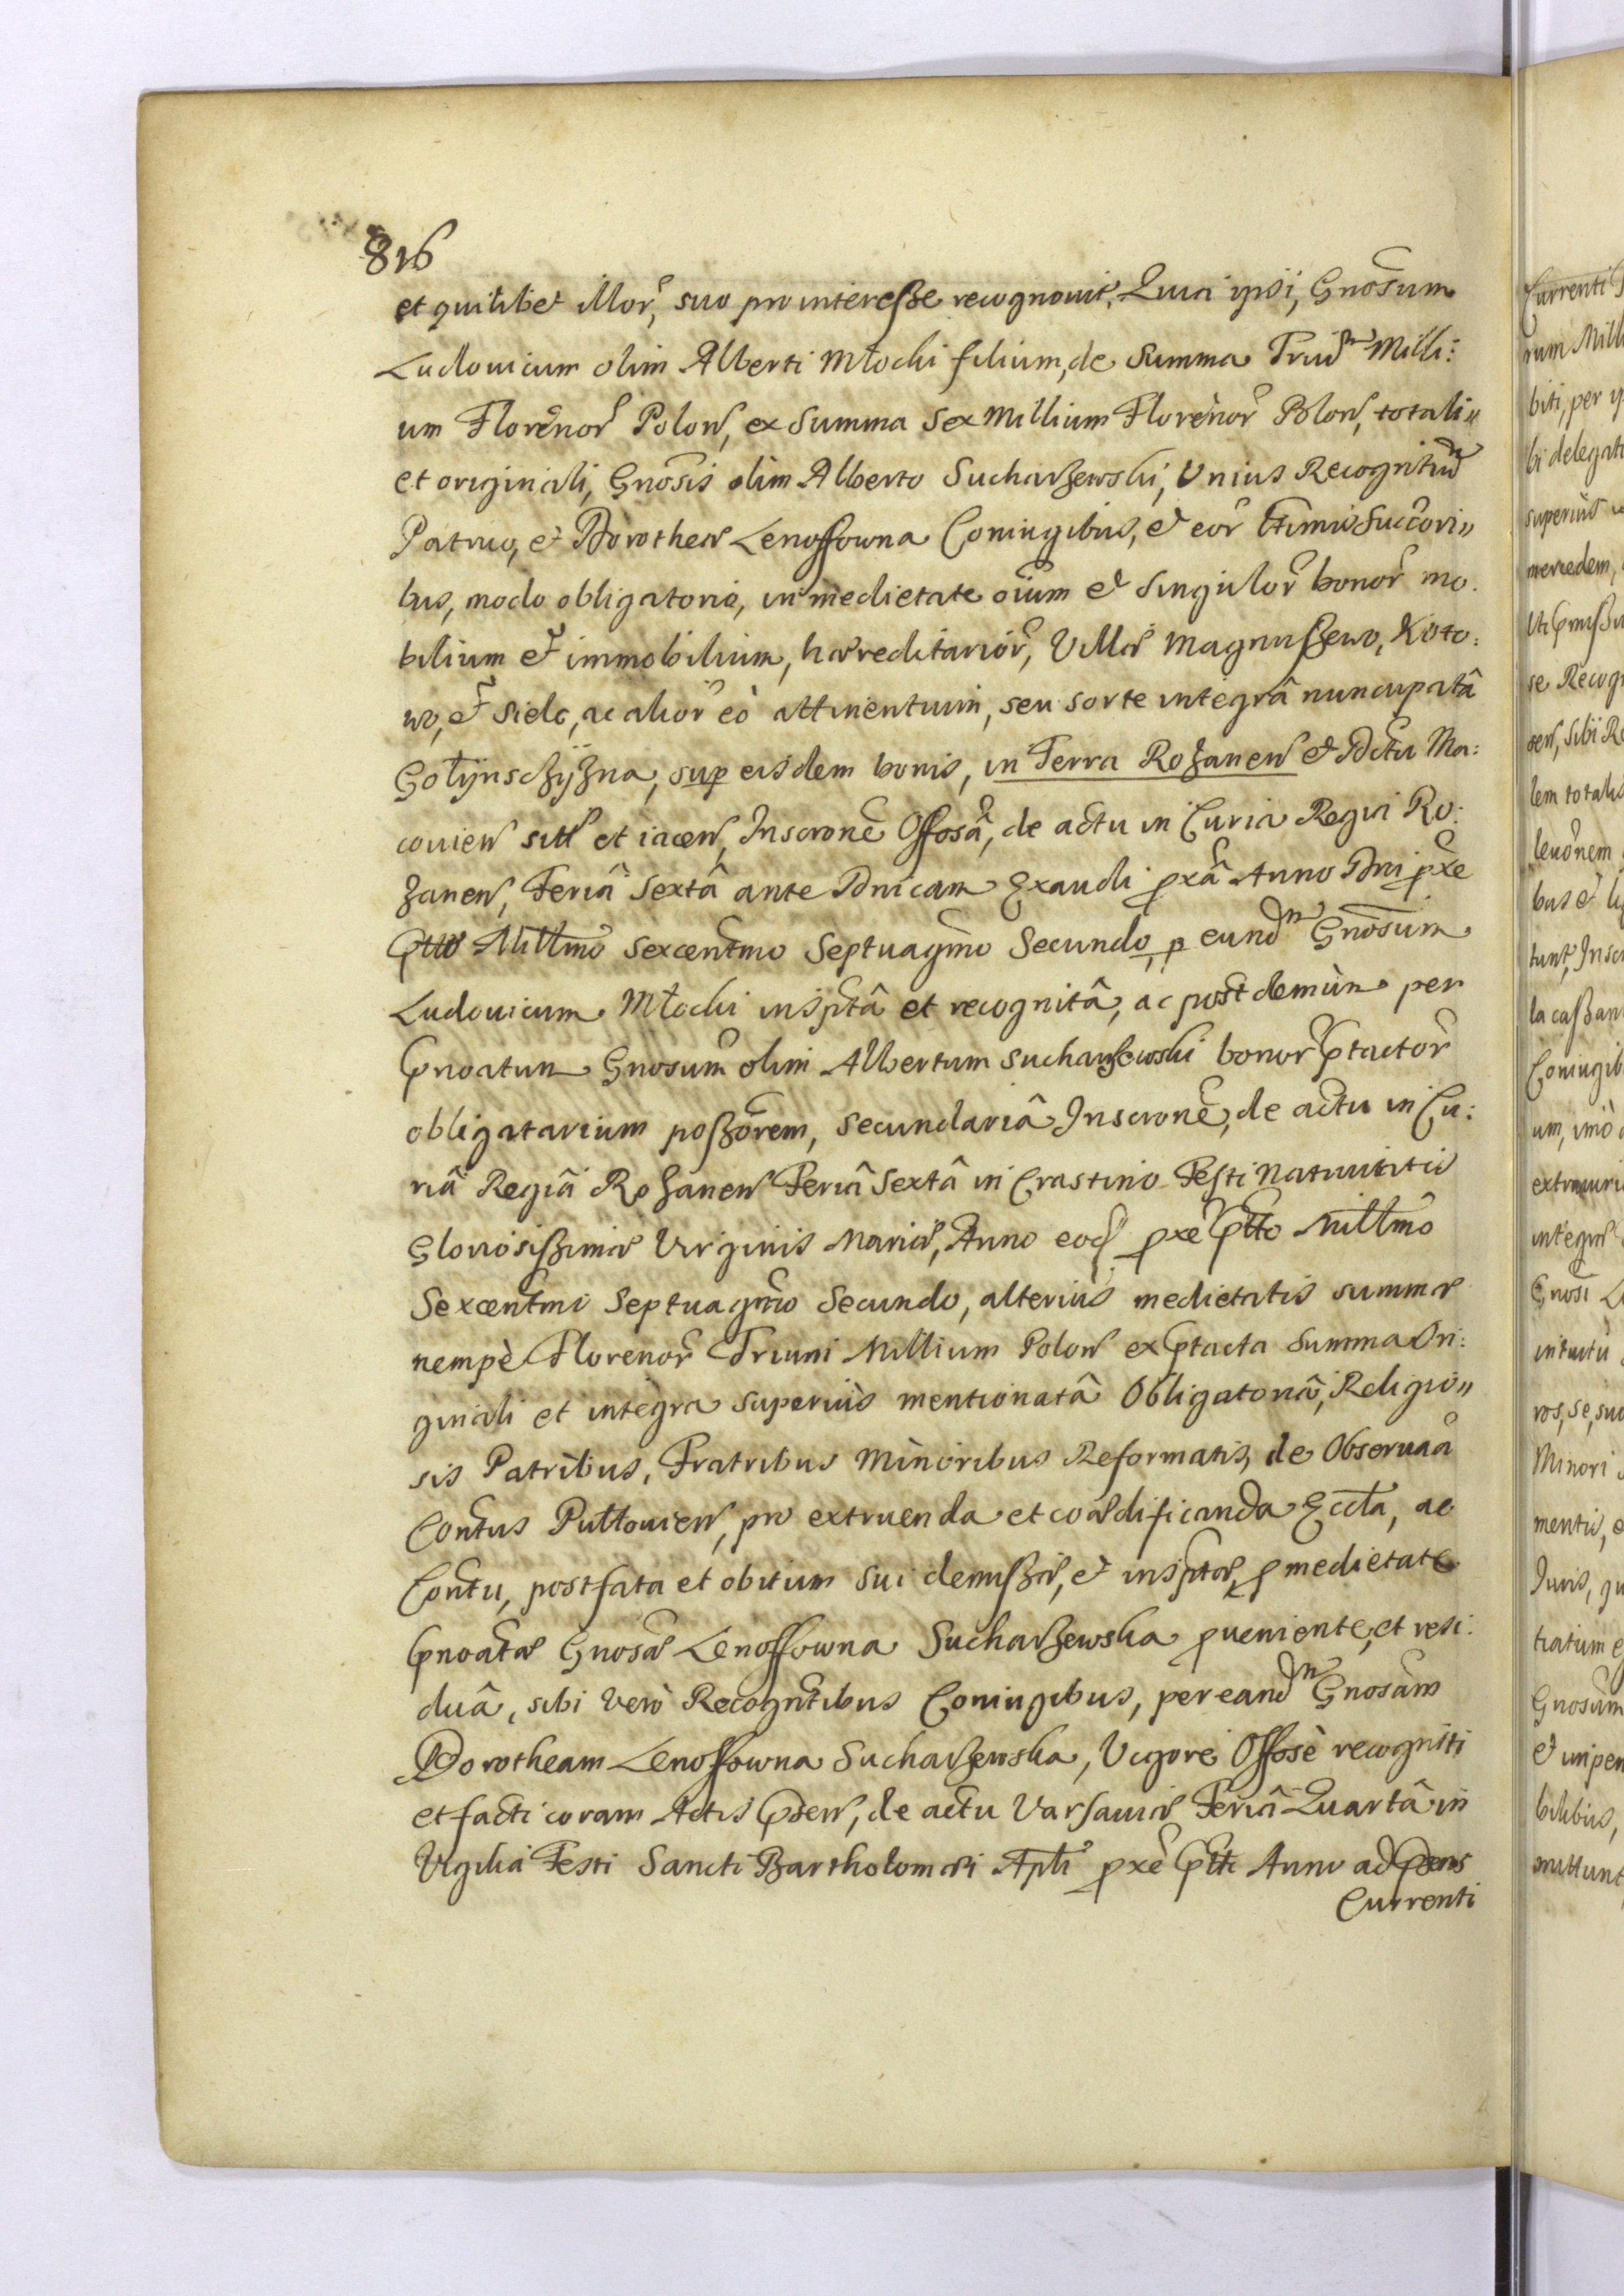 816
et quilibet illor, suo pro interesse recognovit, Quia ipsi, Gnosum
Ludovicum olim Alberti Młocki filium, de Summa Triũ Milli:
um Florenor Polon, ex Summa Sex Millium Florenor Polon, totali
et originali, Gnosis olim Alberto Sucharzewski, Unius Recognitiũ
Patruo, et Dorotheæ Lenossowna Coniugibus, et eor ltimis Succori
bus, modo obligatorio, in medietate oium et Singulor bonor mo.
bilium et immobilium, hæreditarior, Villæ Magnuszewo, Koto:
wo, et Sielc, ac alior eò attinentium, seu sorte integrâ nuncupatâ
Gołÿnsczÿzna, sup eisdem bonis, in Terra Rozanen et Dctu Ma:
covien sitt et iacen, Inscrone Offosâ, de actu in Curia Regia Ro:
zanen, Feriâ Sextâ ante Dnicam Exaudi pxâ Anno Dni pxe
Ptto Millmo Sexcentmo Septuagmo Secundo, p eund Gnosum
Ludovicum Młocki insptâ et recognitâ, ac post demùm per
Pnoatum Gnosum olim Albertum Sucharzewski bonor Ptactor
obligatarium possorem, Secundariâ Inscrone, de actu in Cu:
riâ Regiâ Rozanen Feriâ Sextâ in Crastino Festi Nativitatis
Gloriosissimæ Virginis Mariæ, Anno eod pxe Ptto Millmo
Sexcentmo Septuagmo Secundo, alterius medietatis summæ
nempè Florenor Trium Millium Polon ex Ptacta Summa Ori:
ginali et integra superiùs mentionatâ Obligatoriâ, Religio
sis Patribus, Fratribus Minoribus Reformatis, de Observaa
Contus Pułtovien, pro extruenda et coædificanda Eccla, ac
Contu, post fata et obitum sui demissæ, et insptæ, p medietate
Pnoatæ Gnosæ Lenossowna Sucharzewska pveniente, et resi:
duâ, sibi verò Recogntibus Coniugibus, per eand Gnosam
Dorotheam Lenossowna Sucharzewska, Vigore Offosè recogniti
et facti coram Actis Psen, de actu Varsaviæ Feriâ Quartâ in
Vigilia Festi Sancti Bartholomæi Apli pxe Ptti Anno ad Psens
Currenti